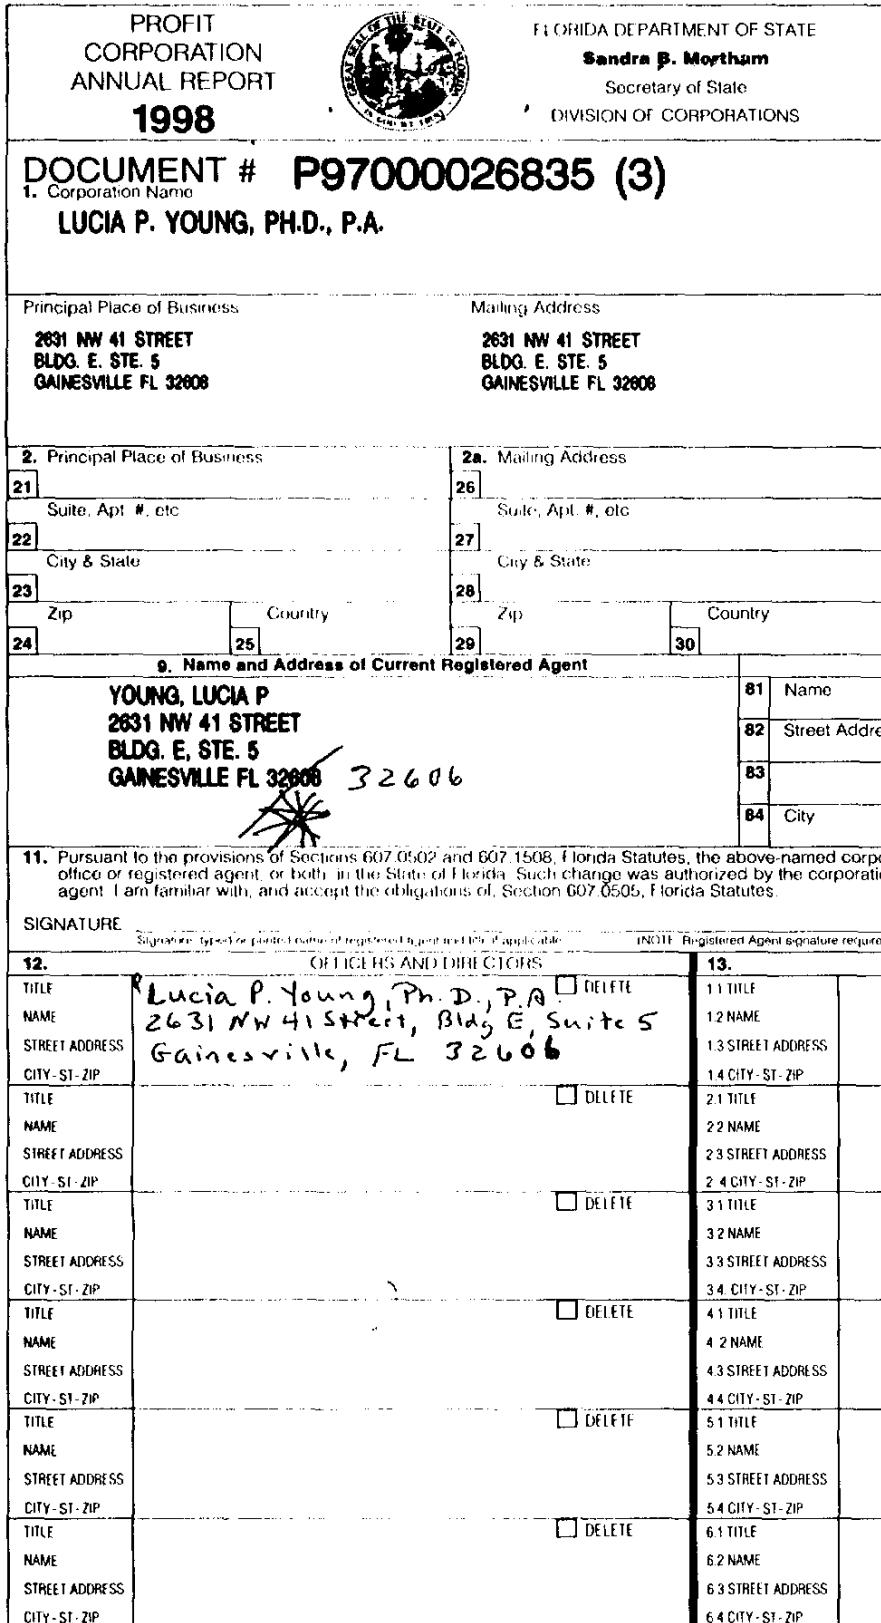 PROFIT
CORPORATION
ANNUAL REPORT
1998
FLORIDA DEPARTMENT OF STATE
Sandra B. Mortham
Secretary of State
DIVISION OF CORPORATIONS
DOCUMENT # P97000026835 (3)
1. Corporation Name
LUCIA P. YOUNG, PH.D., P.A.
Principal Place of Business
Mailing Address
2631 NW 41 STREET
BLDG. E. STE. 5
GAINESVILLE FL 32608
2631 NW 41 STREET
BLDG. E. STE. 5
GAINESVILLE FL 32608
2. Principal Place of Business
2a. Mailing Address
21
26
Suite, Apt. #, etc
Suite, Apt. #, etc
22
27
City & State
City & State
23
28
Zip
Country
Zip
Country
24
25
29
30
9. Name and Address of Current Registered Agent
YOUNG, LUCIA P
2631 NW 41 STREET
BLDG. E, STE. 5
GAINESVILLE FL 32608 32606
81 Name
82 Street Addre
83
84 City
11. Pursuant to the provisions of Sections 607.0502 and 607.1508, Florida Statutes, the above-named corpo
office or registered agent, or both, in the State of Florida. Such change was authorized by the corporati
agent. I am familiar with, and accept the obligations of, Section 607.0505, Florida Statutes.
SIGNATURE
Signature, typed or printed name of registered agent and title if applicable
(NOTE: Registered Agent signature require
12. OFFICERS AND DIRECTORS
13.
TITLE
NAME
STREET ADDRESS
CITY-ST-ZIP
Lucia P. Young, Ph.D., P.A.
2631 NW 41 Street, Bldg E, Suite 5
Gainesville, FL 32606
DELETE
1.1 TITLE
1.2 NAME
1.3 STREET ADDRESS
1.4 CITY-ST-ZIP
TITLE
NAME
STREET ADDRESS
CITY-ST-ZIP
DELETE
2.1 TITLE
2.2 NAME
2.3 STREET ADDRESS
2.4 CITY-ST-ZIP
TITLE
NAME
STREET ADDRESS
CITY-ST-ZIP
DELETE
3.1 TITLE
3.2 NAME
3.3 STREET ADDRESS
3.4. CITY-ST-ZIP
TITLE
NAME
STREET ADDRESS
CITY-ST-ZIP
DELETE
4.1 TITLE
4.2 NAME
4.3 STREET ADDRESS
4.4 CITY-ST-ZIP
TITLE
NAME
STREET ADDRESS
CITY-ST-ZIP
DELETE
5.1 TITLE
5.2 NAME
5.3 STREET ADDRESS
5.4 CITY-ST-ZIP
TITLE
NAME
STREET ADDRESS
CITY-ST-ZIP
DELETE
6.1 TITLE
6.2 NAME
6.3 STREET ADDRESS
6.4 CITY-ST-ZIP